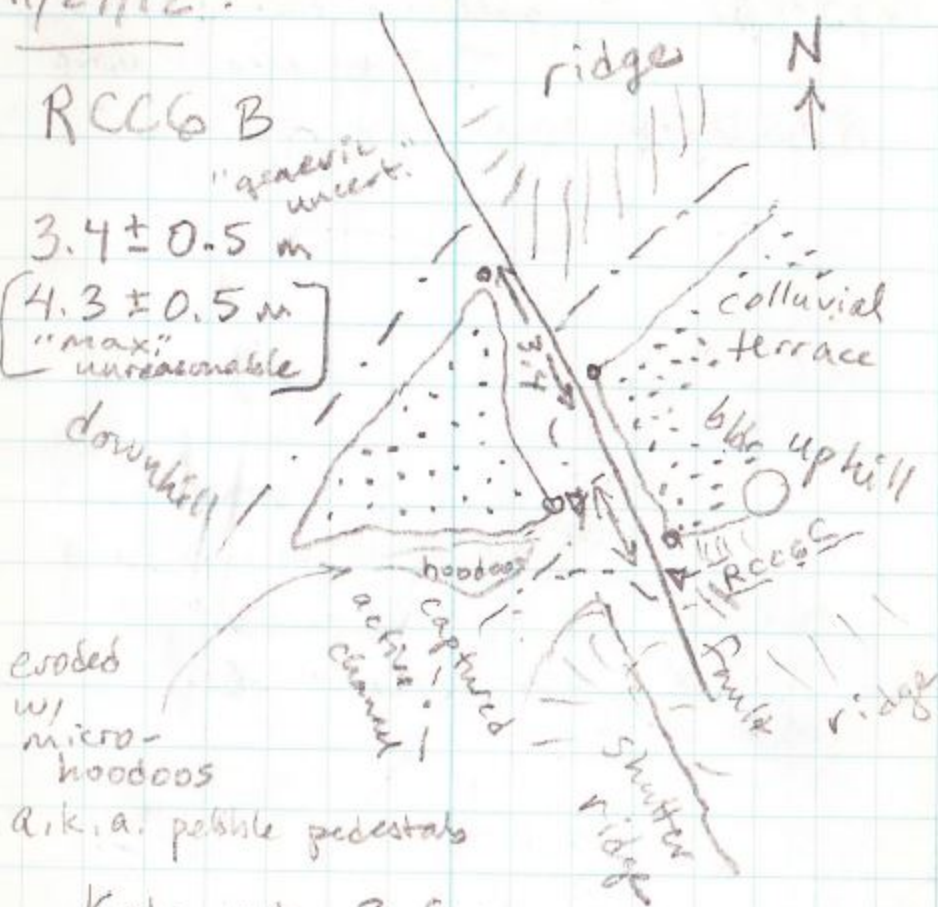 RCC6 B
"generic
uncert."
3.4 ± 0.5 m
[4.3 ± 0.5 m
"max,"
unreasonable]
ridge
N
colluvial
terrace
downhill
3.4
bldr uphill
RCC6C
hoodoos
active
channel
captured
fault
ridge
shutter
ridge
eroded
w/
micro-
hoodoos
a.k.a. pebble pedestals